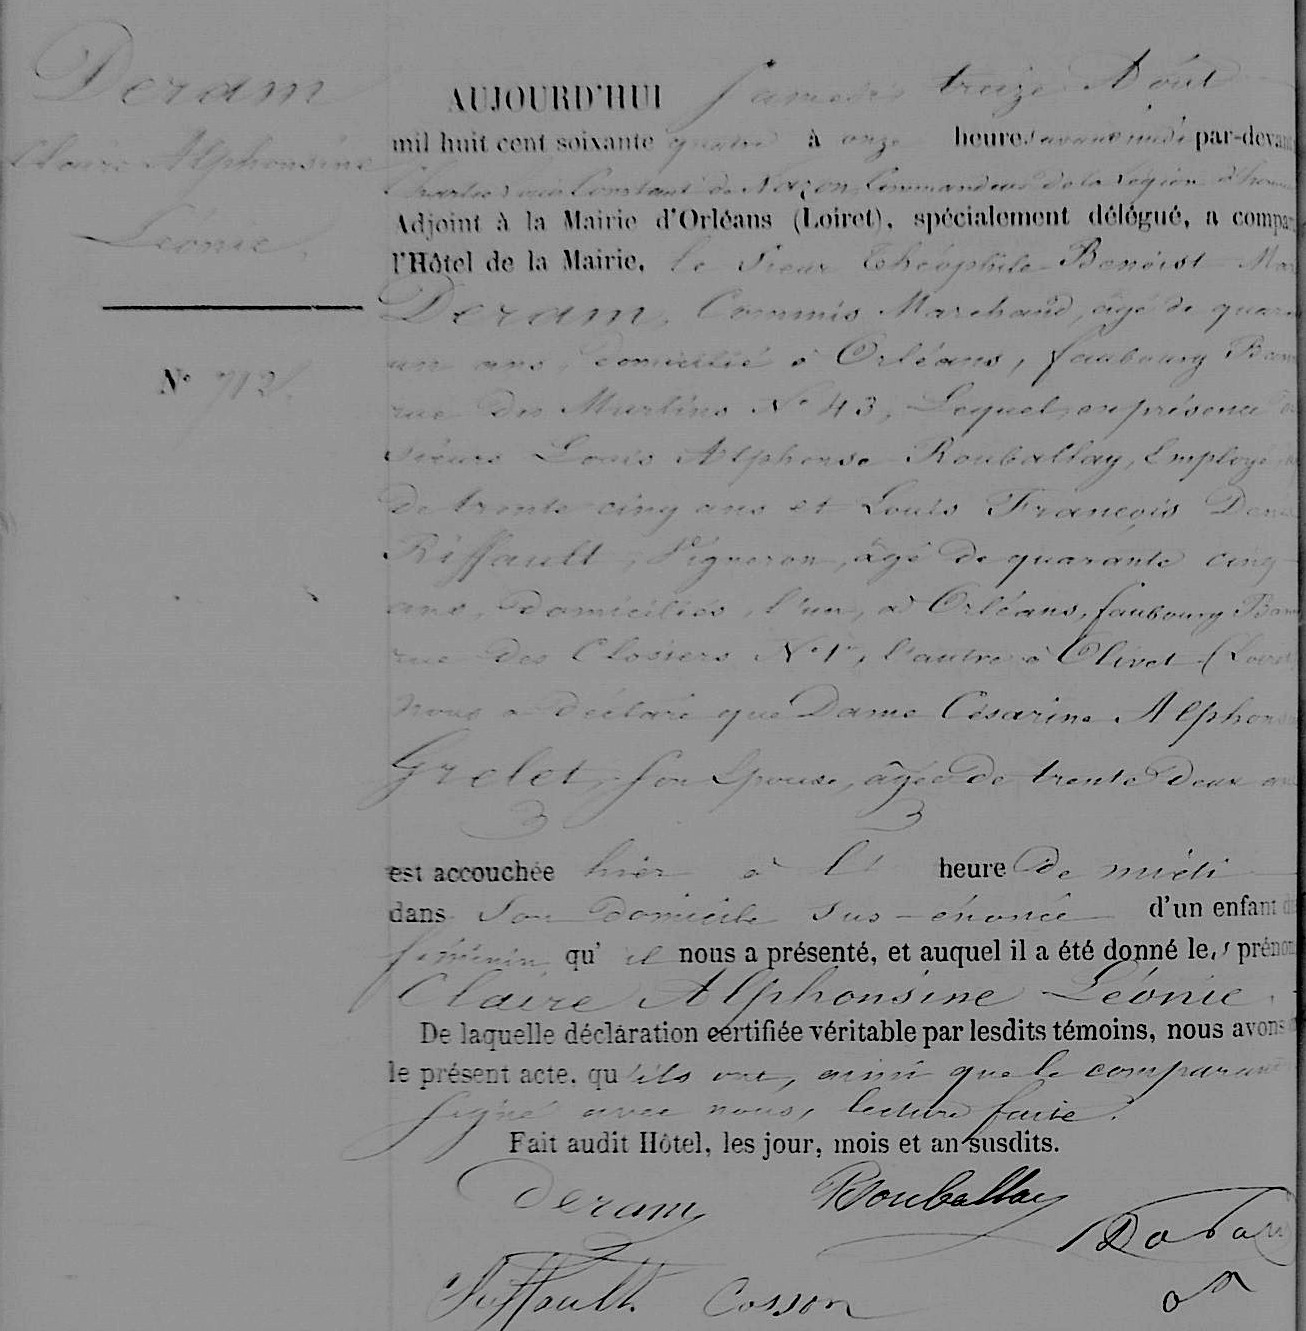 Deram
Claire Alphonsine
Léonie.
N° 712
AUJOURD'HUI Samedi treize Août
mil huit cent soixante quatre à onze heures avant midi par-devan
Constant de Nazon, Commandeur de la Légion d'honn
Adjoint à la Mairie d'Orléans (Loiret), spécialement délégué, a compar
l'Hôtel de la Mairie, le Sieur Théophile Benoist Mar
Deram, Commis Marchand, âgé de quaran
un ans, domicilié à Orléans, faubourg Ban
rue des Murlins N° 43, Lequel, en présence de
sieurs Louis Alphonse Rouballay, Employé
de trente cinq ans et Louis François
Riffault, Vigneron, âgé de quarante cinq
ans, domiciliés, l'un, à Orléans, faubourg Ban
rue des Closiers N° 1er, l'autre à Olivet (Loir
Nous a déclaré que Dame Césarine Alphons
Grelet, son Epouse, âgée de trente Deux an
est accouchée hier à l' heure De midi
dans son domicile sus-énoncé d'un enfant d
féminin qu'il nous a présenté, et auquel il a été donné les prénom
Claire Alphonsine Léonie.
De laquelle déclaration certifiée véritable par lesdits témoins, nous avons
le présent acte, qu'ils ont, ainsi que le comparant
signé avec nous, lecture faite.
Fait audit Hôtel, les jour, mois et an susdits.
Deram Rouballay
Riffault Cosson